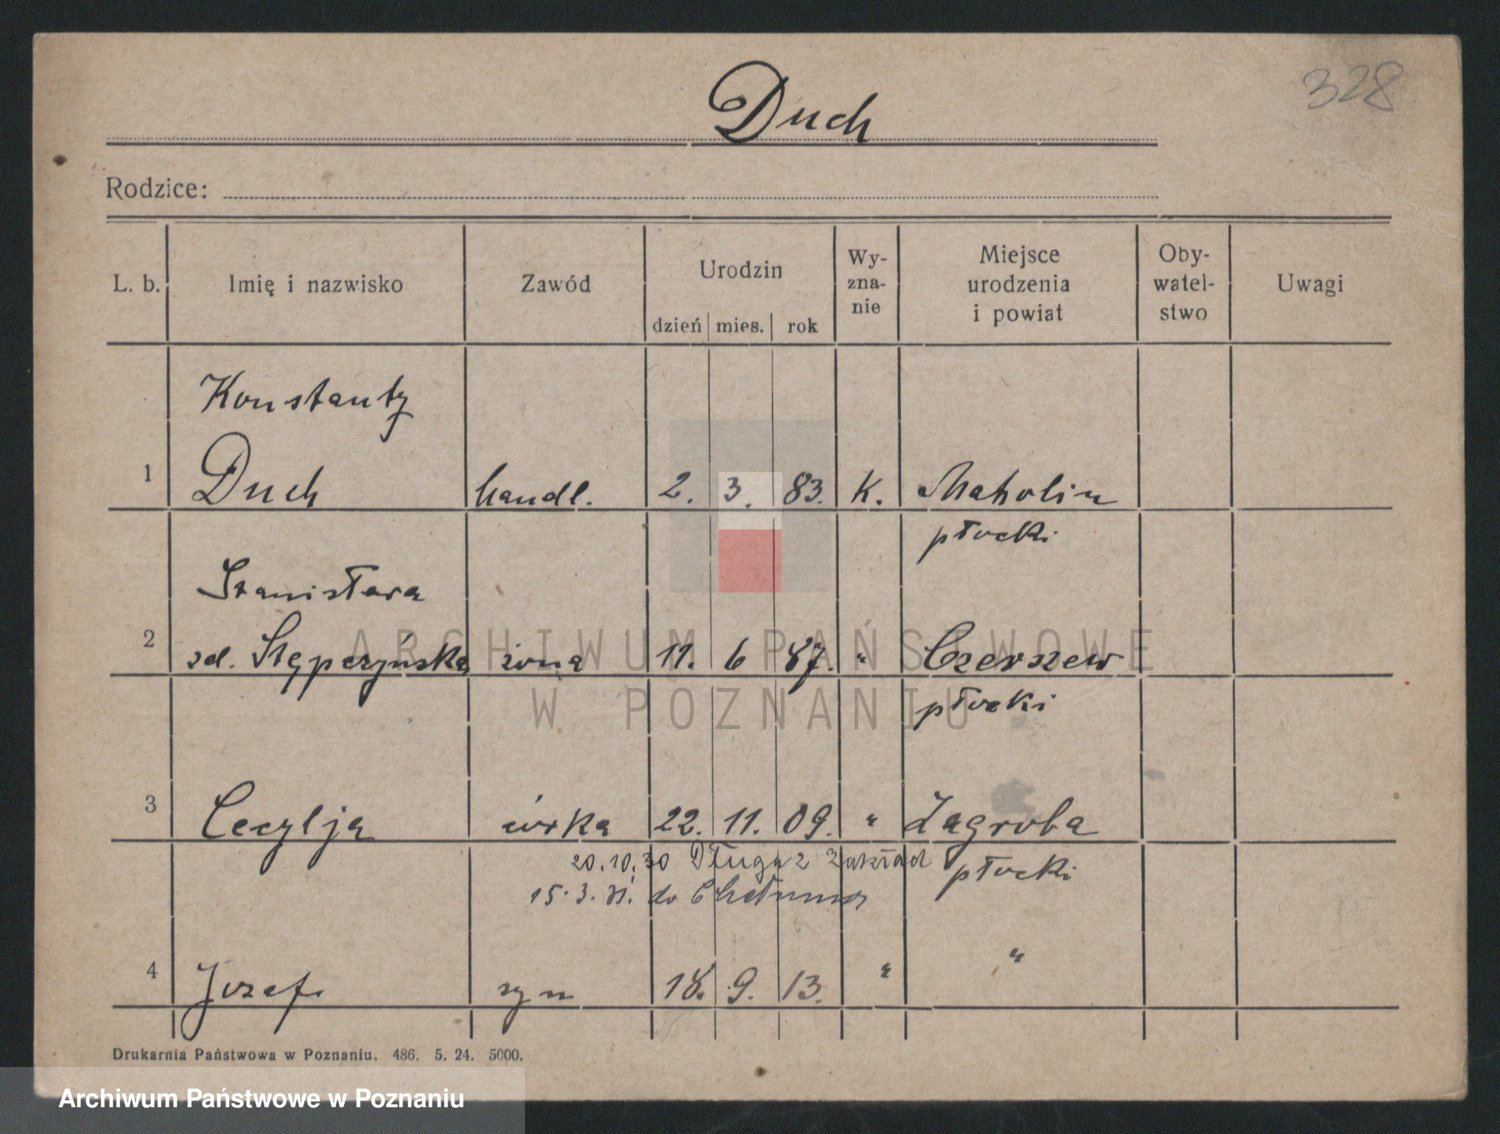 328
Duch
Rodzice:
L. b. Imię i nazwisko Zawód Urodzin dzień mies. rok Wy-zna-nie Miejsce urodzenia i powiat Oby-watel-stwo Uwagi
Konstanty
1 Duch handl. 2. 3. 83. K. Maholin
płocki
Stanisława
2 zd. Stępczyńska żona 11. 6 87. " Czerszew
płocki
3 Cecylja córka 22. 11. 09. " Zagroba
20.10.30 Długa 2 Zakład płocki
15.3.31. do Chełmna
4 Jozef syn 18. 9. 13. " "
Drukarnia Państwowa w Poznaniu. 486. 5. 24. 5000.
ARCHIWUM PAŃSTWOWE
W POZNANIU
Archiwum Państwowe w Poznaniu